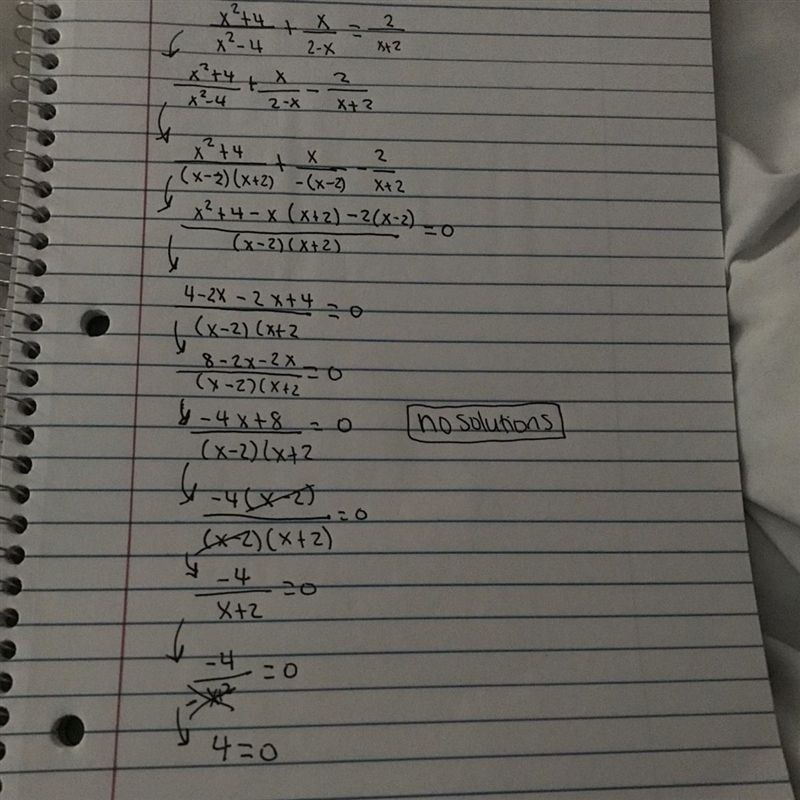 x²+4/x²-4 + x/2-x = 2/x+2
x²+4/x²-4 + x/2-x - 2/x+2
x²+4/(x-2)(x+2) + x/-(x-2) - 2/x+2
x²+4-x(x+2)-2(x-2)/(x-2)(x+2) = 0
4-2x-2x+4/(x-2)(x+2 = 0
8-2x-2x/(x-2)(x+2 = 0
-4x+8/(x-2)(x+2 = 0 no solutions
-4(x-2)/(x-2)(x+2) = 0
-4/x+2 = 0
-4/ = 0
4=0